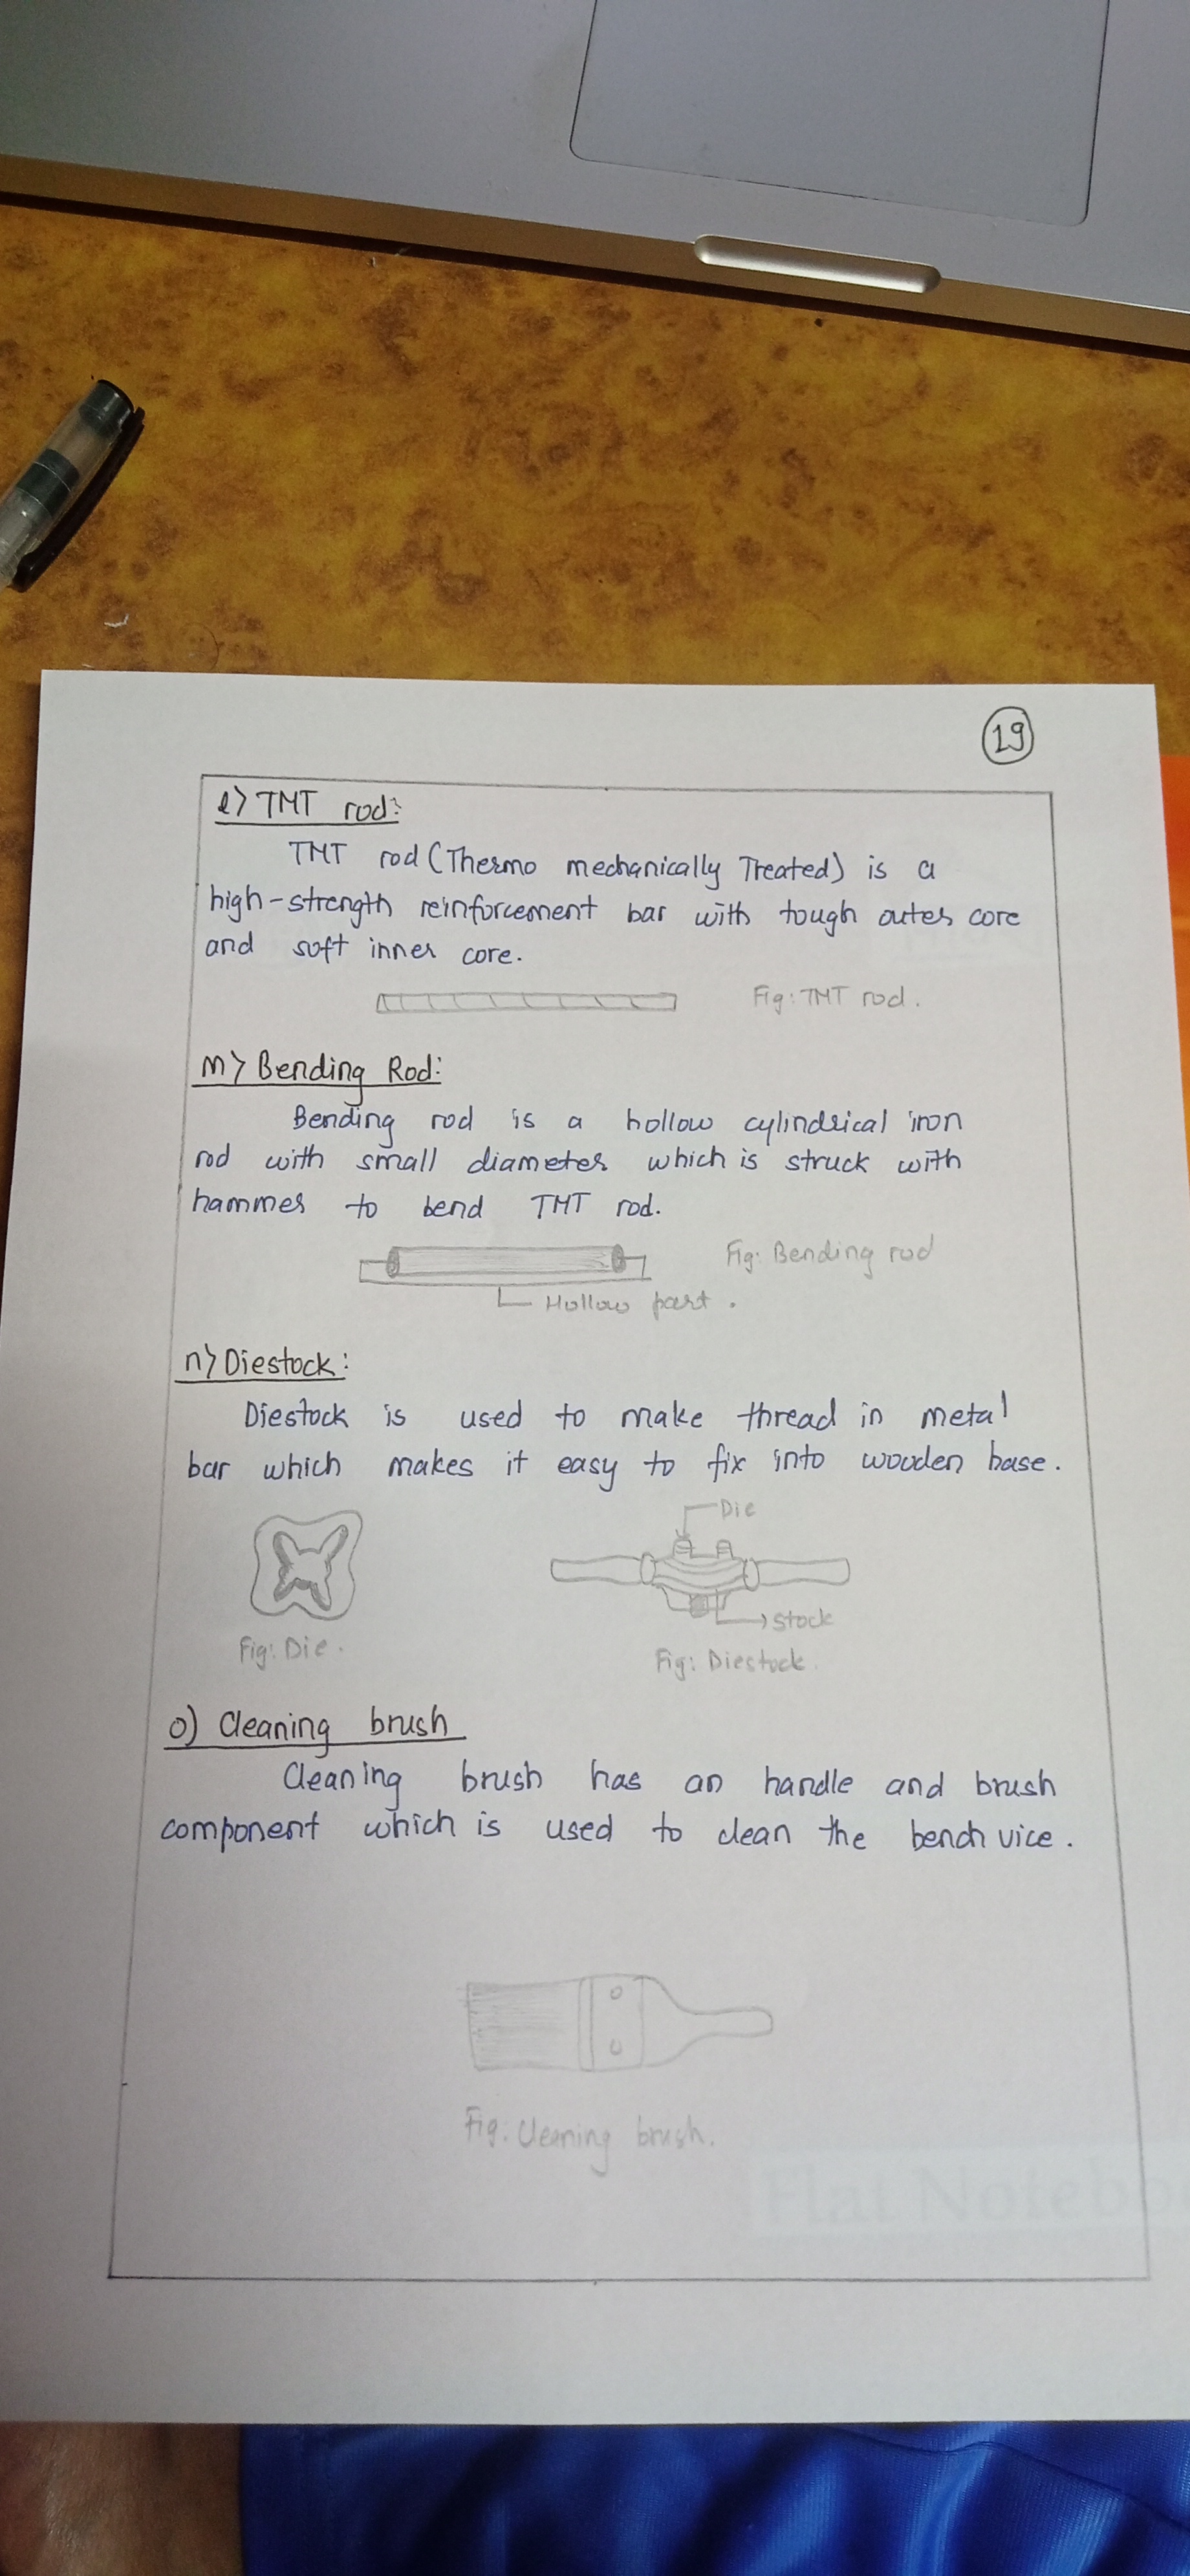 19
l) TMT rod:
TMT rod (Thermo mechanically Treated) is a
high-strength reinforcement bar with tough outer core
and soft inner core.
Fig: TMT rod.
m) Bending Rod:
Bending rod is a hollow cylindrical iron
rod with small diameter which is struck with
hammer to bend TMT rod.
Fig: Bending rod
Hollow part.
n) Diestock:
Diestock is used to make thread in metal
bar which makes it easy to fix into wooden base.
Die
Stock
Fig: Die.
Fig: Diestock.
o) Cleaning brush
Cleaning brush has an handle and brush
component which is used to clean the bench vice.
Fig: Cleaning brush.
Flat Notebo